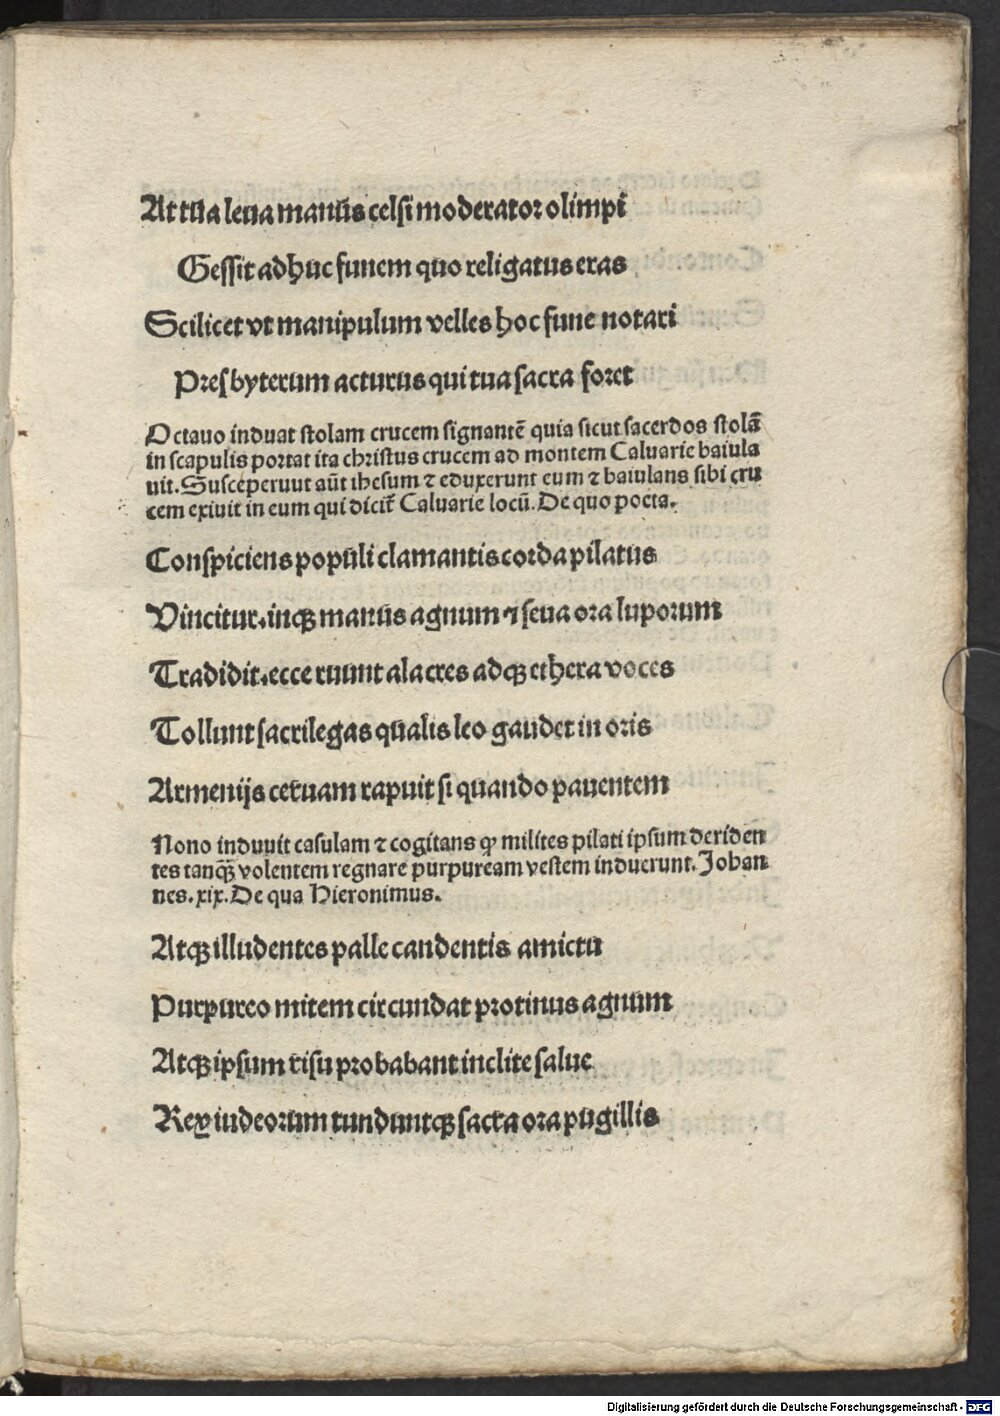 At tua leua manus celsi moderator olimpi
Gessit adhuc funem quo religatus eras
Scilicet vt manipulum velles hoc fune notari
Presbyterum acturus qui tua sacra foret
Octauo induat stolam crucem signantē quia sicut sacerdos stolā
in scapulis portat ita christus crucem ad montem Caluarie baiula
uit. Susceperuut aūt ihesum ⁊ eduxerunt eum ⁊ baiulans sibi cru
cem exiuit in eum qui dicit̄ Caluarie locū. De quo poeta.
Conspiciens populi clamantis corda pilatus
Vincitur. inqꝫ manus agnum ⁊ seua ora luporum
Tradidit. ecce ruunt alacres adqꝫ ethera voces
Tollunt sacrilegas qualis leo gaudet in oris
Armenijs ceruam rapuit si quando pauentem
Nono induuit casulam ⁊ cogitans ꝙ milites pilati ipsum deriden
tes tanqꝫ̄ volentem regnare purpuream vestem induerunt. Johan
nes. xix. De qua Hieronimus.
Atqꝫ illudentes palle candentis amictu
Purpureo mitem circundat protinus agnum
Atqꝫ ipsum risu probabant inclite salue
Rex iudeorum tunduntqꝫ sacra ora pugillis
Digitalisierung gefördert durch die Deutsche Forschungsgemeinschaft - DFG